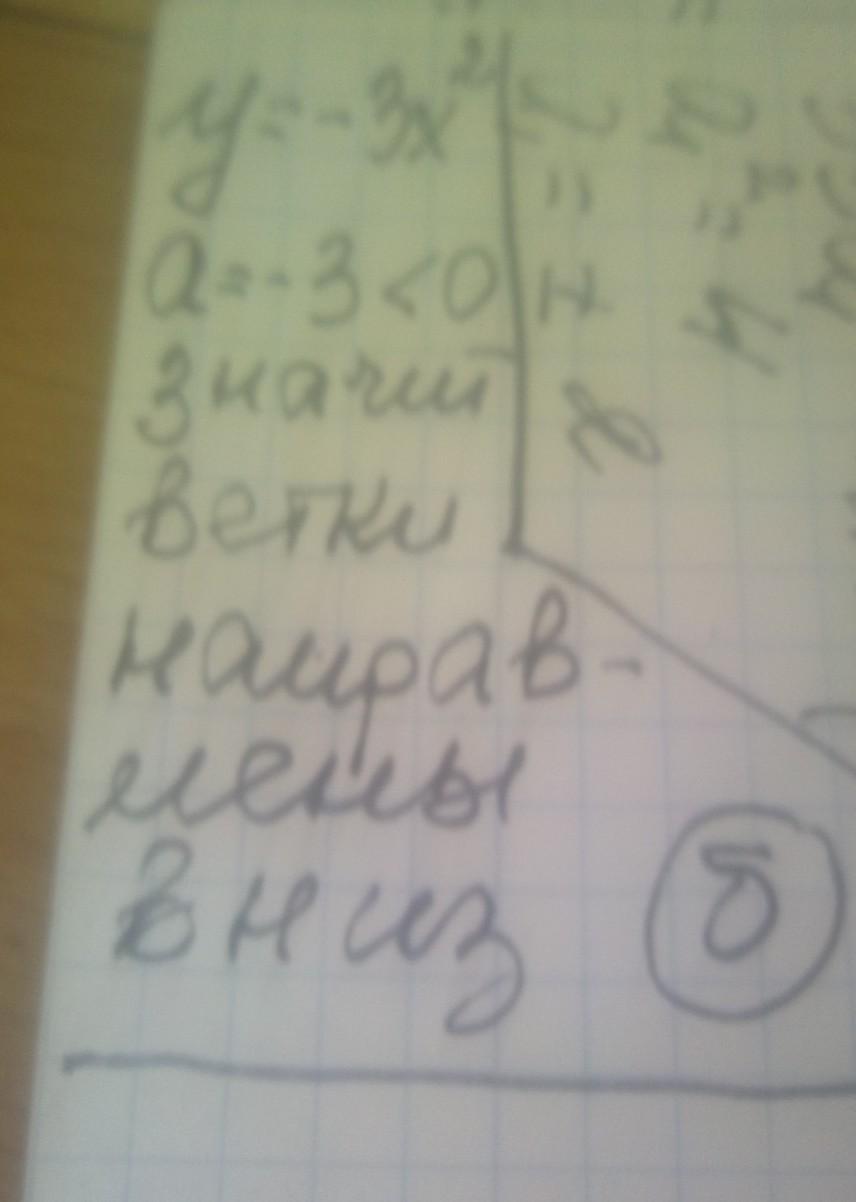 y=-3x²
a=-3<0
значит
ветки
направ-
лены
вниз
б